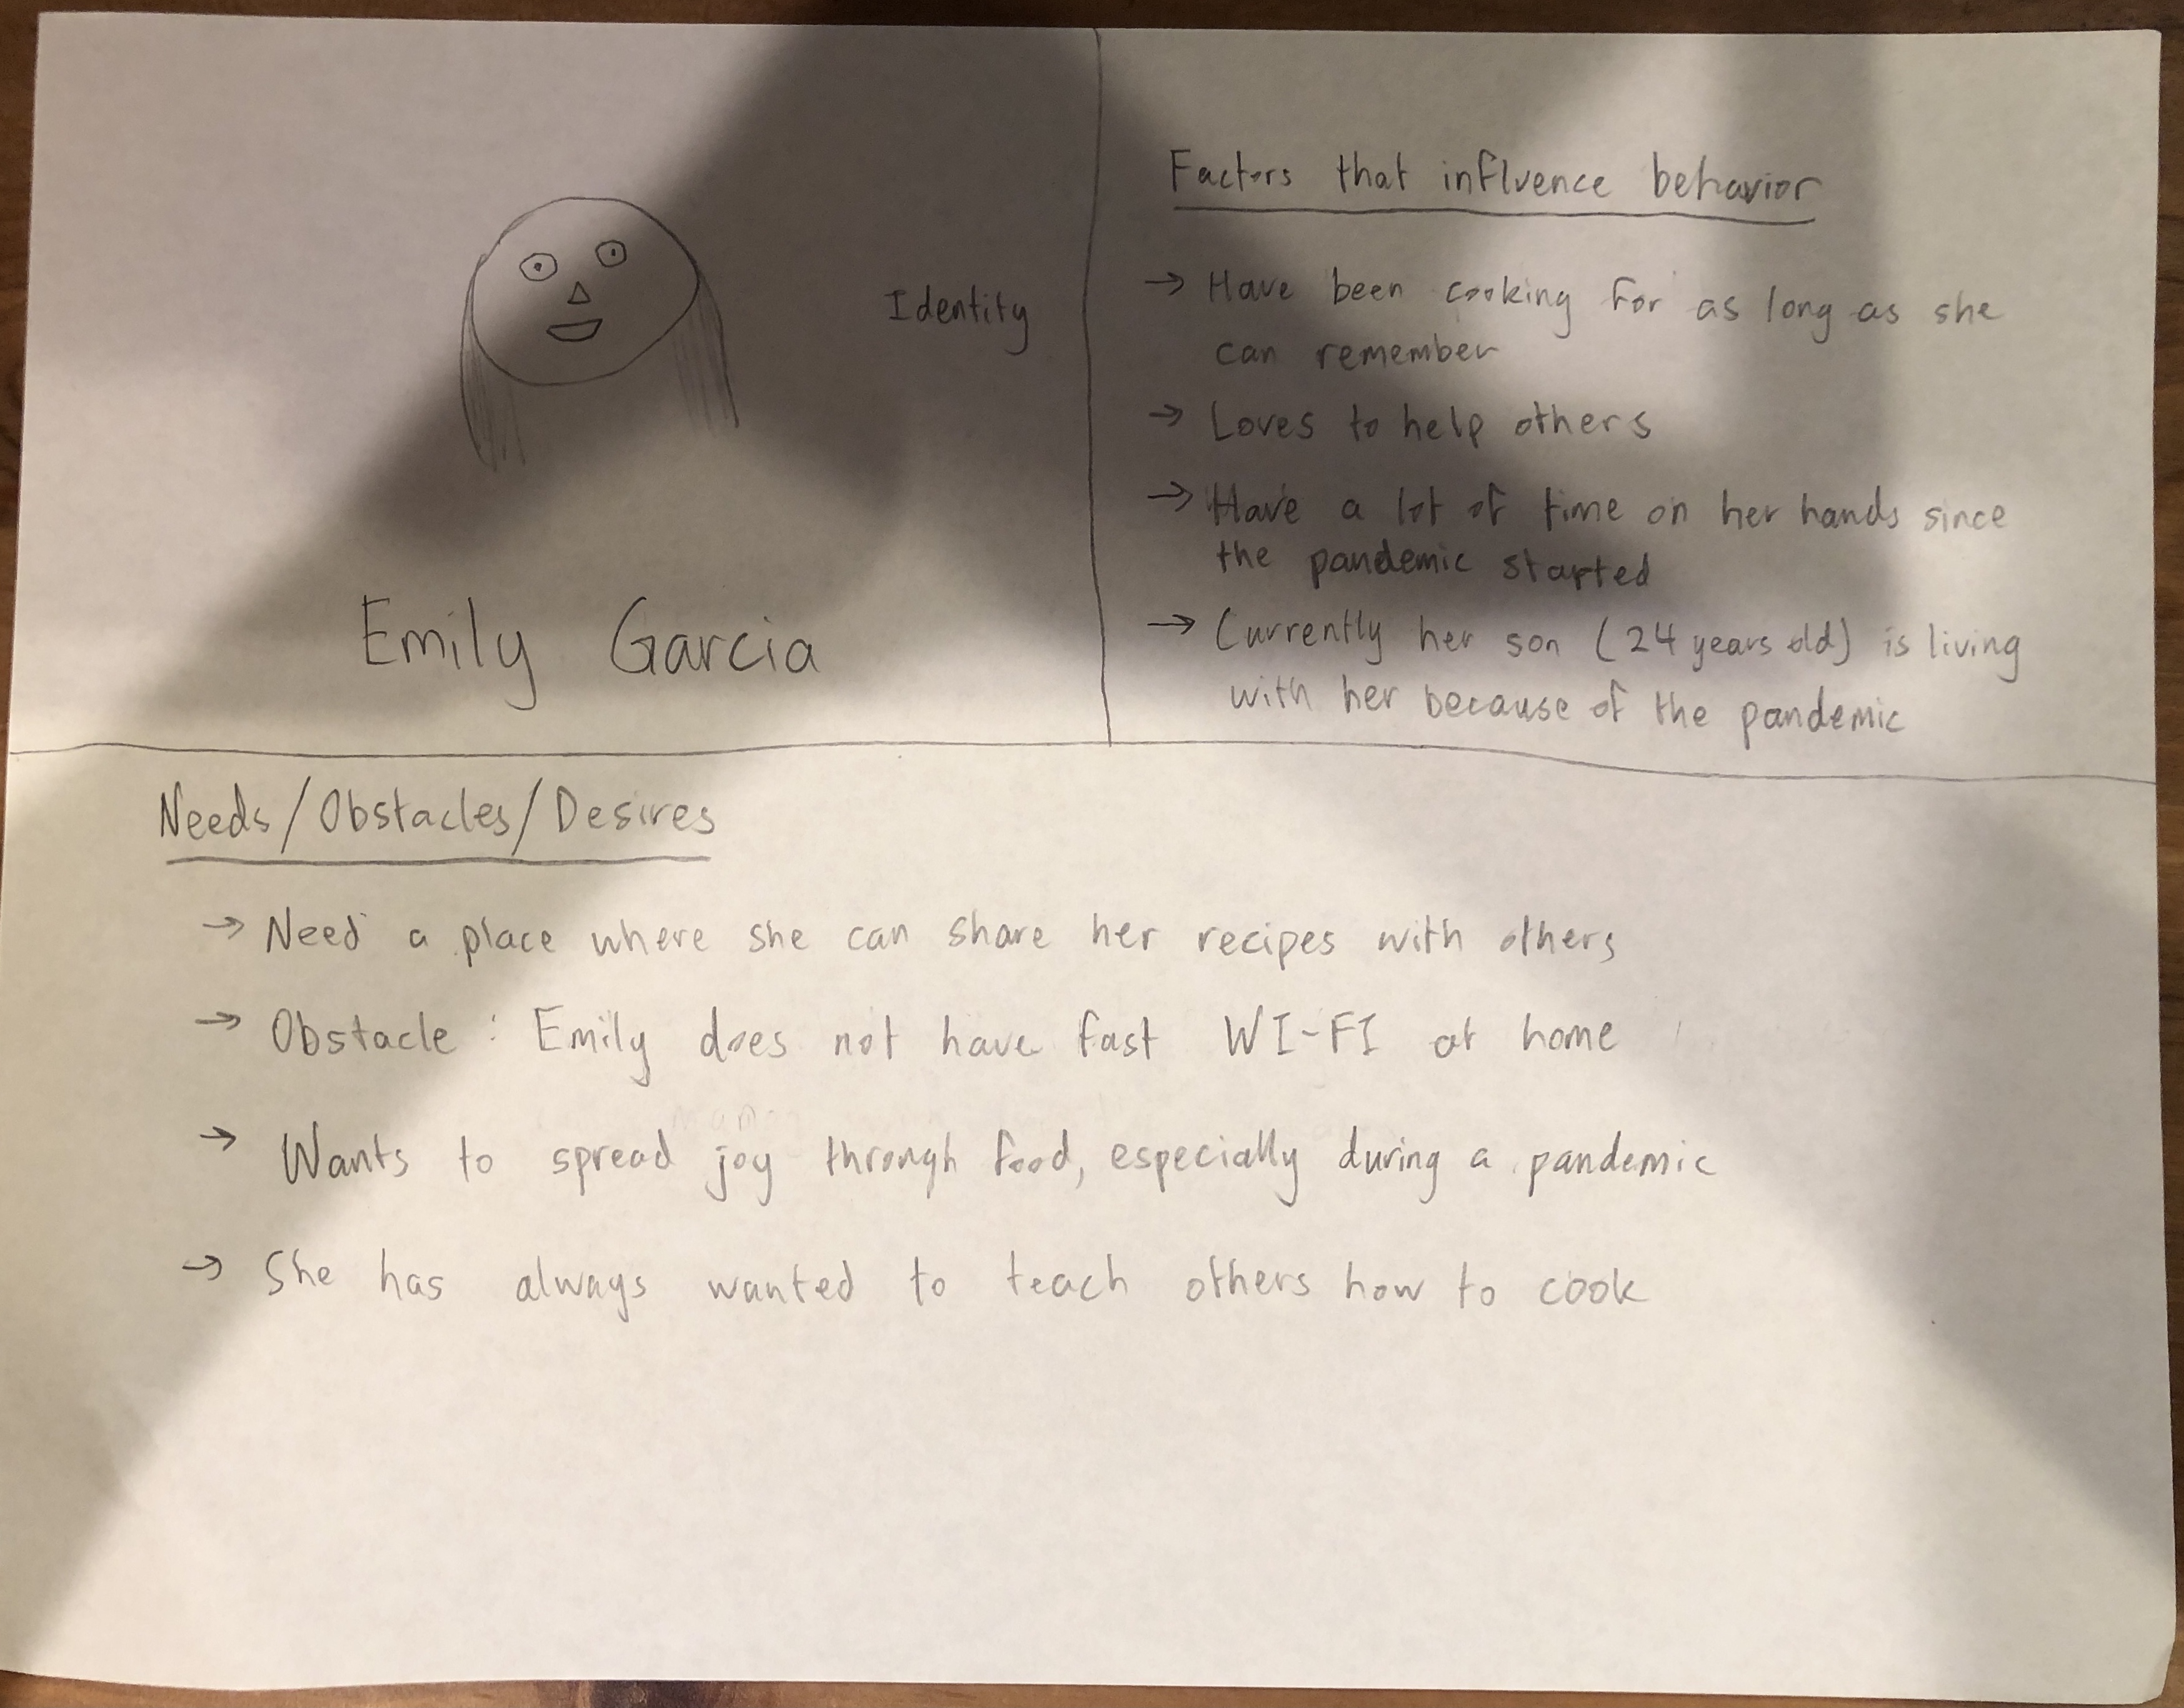 Identity
Emily Garcia
Factors that influence behavior
→ Have been cooking for as long as she
can remember
→ Loves to help others
→ Have a lot of time on her hands since
the pandemic started
→ Currently her son (24 years old) is living
with her because of the pandemic
Needs/Obstacles/Desires
→ Need a place where she can share her recipes with others
→ Obstacle: Emily does not have fast WI-FI at home
→ Wants to spread joy through food, especially during a pandemic
→ She has always wanted to teach others how to cook